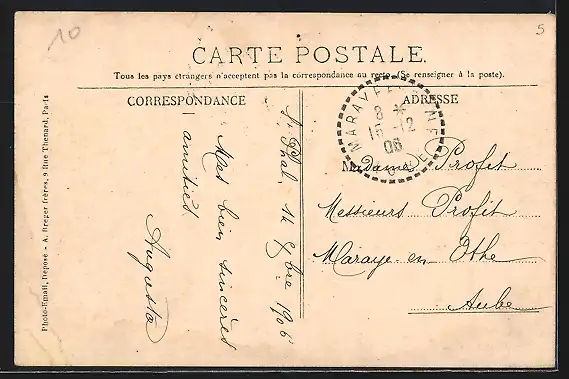 10
5
CARTE POSTALE.
Tous les pays étrangers n'acceptent pas la correspondance au recto. (Se renseigner à la poste).
CORRESPONDANCE
ADRESSE
St Phal, 14 Xbre 1906
Mes bien sincères
amitiés
Augusta
8 *
15 - 12
06
Madame Profit
Messieurs Profit
Maraye-en Othe
Aube
Photo-Email, Déposé - A. Breger frères, 9 Rue Thénard, Paris